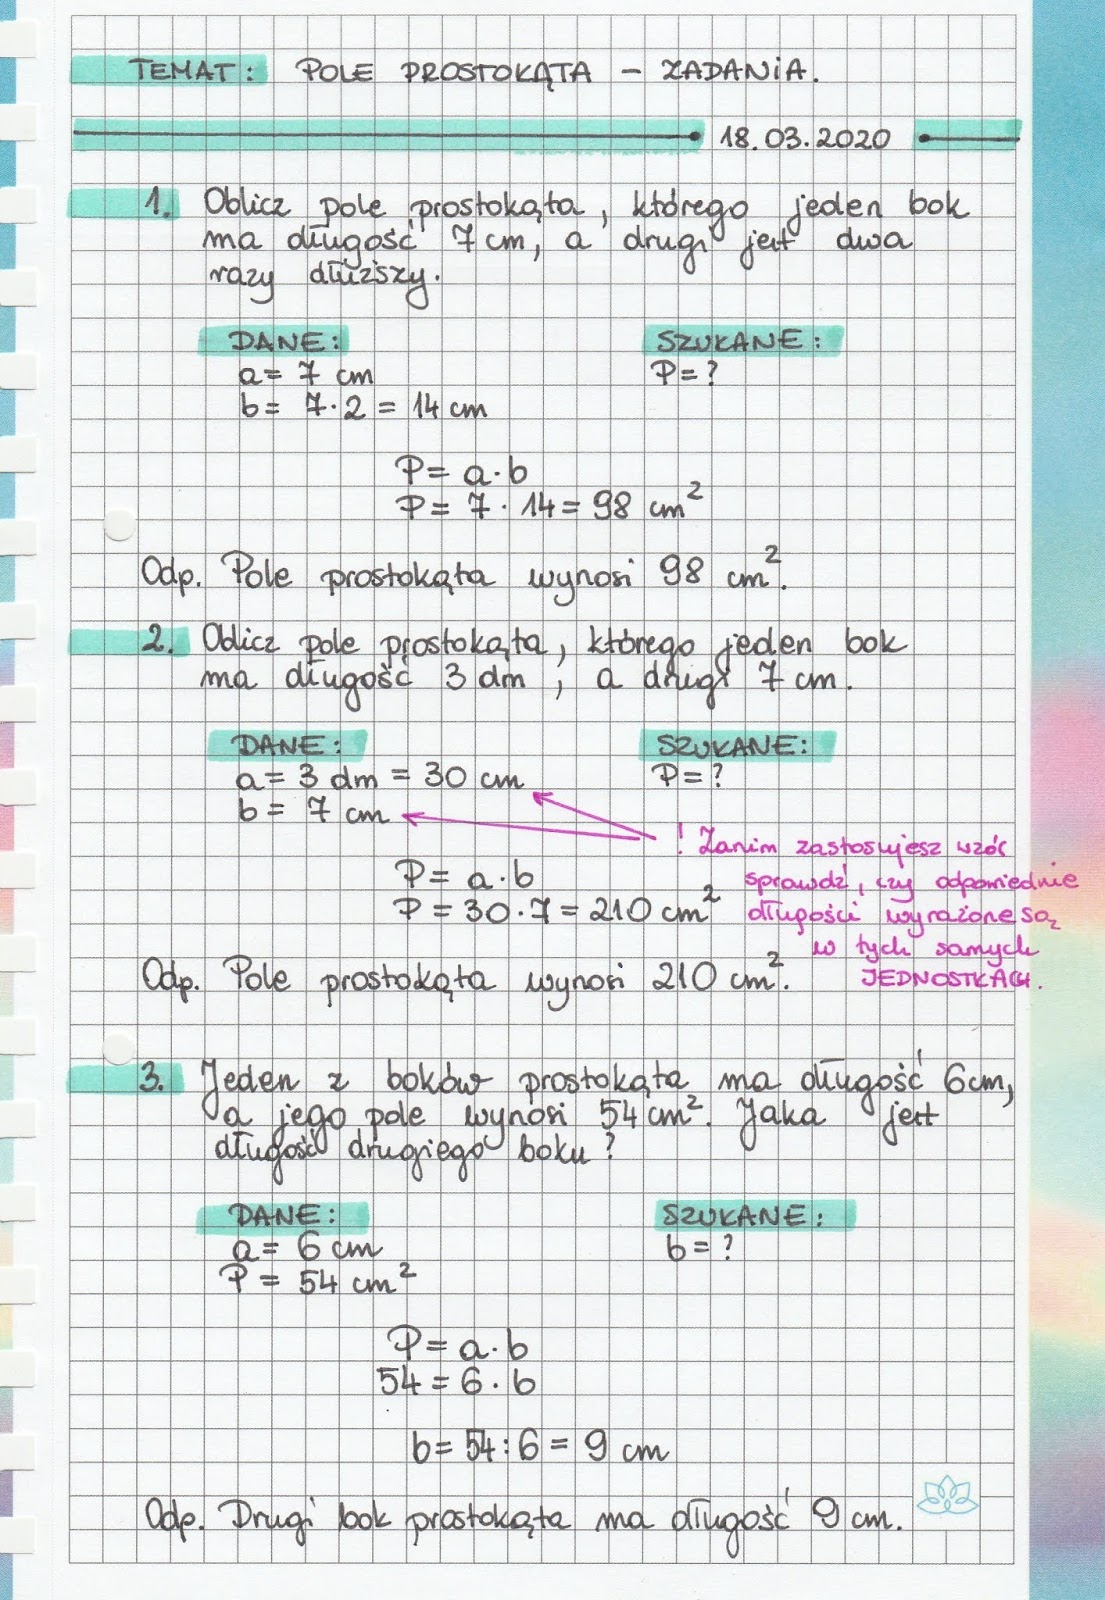 TEMAT: POLE PROSTOKĄTA – ZADANIA.
18.03.2020
1. Oblicz pole prostokąta, którego jeden bok
ma długość 7 cm, a drugi jest dwa
razy dłuższy.
DANE: SZUKANE:
a = 7 cm P = ?
b = 7·2 = 14 cm
P = a·b
P = 7·14 = 98 cm²
Odp. Pole prostokąta wynosi 98 cm².
2. Oblicz pole prostokąta, którego jeden bok
ma długość 3 dm, a drugi 7 cm.
DANE: SZUKANE:
a = 3 dm = 30 cm P = ?
b = 7 cm
! Zanim zastosujesz wzór
sprawdź, czy odpowiednie
długości wyrażone są
w tych samych
JEDNOSTKACH.
P = a·b
P = 30·7 = 210 cm²
Odp. Pole prostokąta wynosi 210 cm².
3. Jeden z boków prostokąta ma długość 6cm,
a jego pole wynosi 54 cm². Jaka jest
długość drugiego boku?
DANE: SZUKANE:
a = 6 cm b = ?
P = 54 cm²
P = a·b
54 = 6·b
b = 54:6 = 9 cm
Odp. Drugi bok prostokąta ma długość 9 cm.